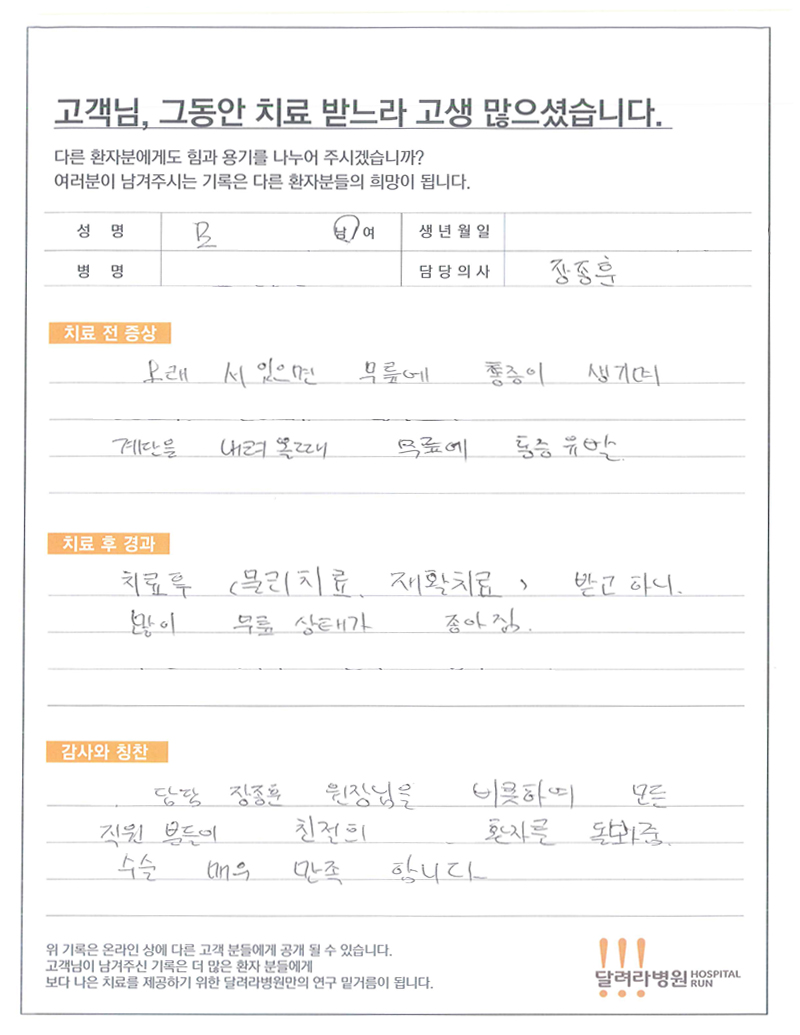 고객님, 그동안 치료 받느라 고생 많으셨습니다.
다른 환자분에게도 힘과 용기를 나누어 주시겠습니까?
여러분이 남겨주시는 기록은 다른 환자분들의 희망이 됩니다.
성 명 B 남/여 생년월일
병 명 담당의사 장종훈
치료 전 증상
오래 서 있으면 무릎에 통증이 생기며
계단을 내려 올때 무릎에 통증 유발.
치료 후 경과
치료후 (물리치료, 재활치료) 받고 하니.
많이 무릎 상태가 좋아 짐.
감사와 칭찬
담당 장종훈 원장님을 비릇하여 모든
직원 분들이 친절히 환자를 돌봐줌.
수술 매우 만족 합니다
위 기록은 온라인 상에 다른 고객 분들에게 공개 될 수 있습니다.
고객님이 남겨주신 기록은 더 많은 환자 분들에게
보다 나은 치료를 제공하기 위한 달려라병원만의 연구 밑거름이 됩니다.
달려라병원 HOSPITAL RUN